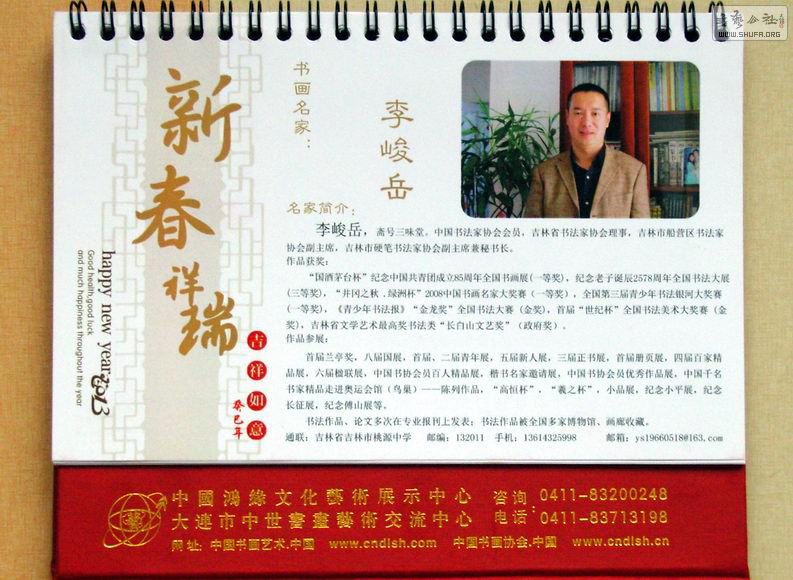 艺公社
WWW.SHUFA.ORG
新春祥瑞
happy new year 2013
Good health,good luck
and much happiness throughout the year
吉祥如意
癸巳年
书画名家：
李峻岳
名家简介：
李峻岳，斋号三味堂。中国书法家协会会员，吉林省书法家协会理事，吉林市船营区书法家
协会副主席，吉林市硬笔书法家协会副主席兼秘书长。
作品获奖：
“国酒茅台杯”纪念中国共青团成立85周年全国书画展(一等奖)，纪念老子诞辰2578周年全国书法大展
(三等奖)，“井冈之秋．绿洲杯”2008中国书画名家大奖赛（一等奖），全国第三届青少年书法银河大奖赛
（一等奖），《青少年书法报》“金龙奖”全国书法大赛（金奖），首届“世纪杯”全国书法美术大奖赛（金
奖），吉林省文学艺术最高奖书法类“长白山文艺奖”（政府奖）。
作品参展：
首届兰亭奖，八届国展，首届、二届青年展，五届新人展，三届正书展，首届册页展，四届百家精
品展，六届楹联展，中国书协会员百人精品展，楷书名家邀请展，中国书协会员优秀作品展，中国千名
书家精品走进奥运会馆（鸟巢）——陈列作品，“高恒杯”，“羲之杯”，小品展，纪念小平展，纪念
长征展，纪念傅山展等。
书法作品、论文多次在专业报刊上发表；书法作品被全国多家博物馆、画廊收藏。
通联：吉林省吉林市桃源中学 邮编：132011 手机：13614325998 邮箱：ys19660518@163.com
中國鴻緣文化藝術展示中心 咨询 0411-83200248
大連市中世書畫藝術交流中心 电话：0411-83713198
网址：中国书画艺术.中国 www.cndlsh.com 中国书画协会.中国 www.cndlsh.cn